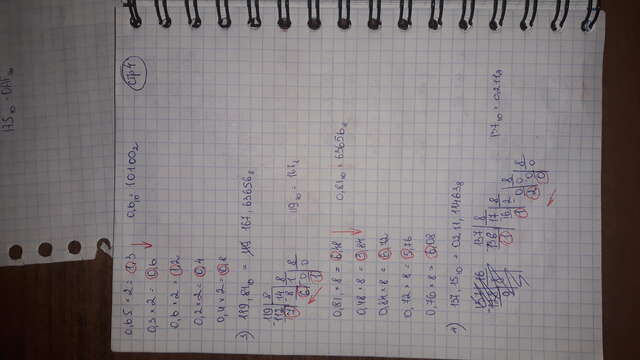 175₁₀ = 0AF₁₆
стр 4
0,65 × 2 = 1,3
0,6₁₀ = 10100₂
0,3 × 2 = 0,6
0,6 × 2 = 1,2
0,2 × 2 = 0,4
0,4 × 2 = 0,8
3) 119,81₁₀ = 167,63656₈
119 | 8
112 | 14 | 8
7 | 8 | 1 | 8
6 | 0 | 0
1
119₁₀ = 167₈
0,81 × 8 = 6,48
0,81₁₀ = 63656₈
0,48 × 8 = 3,84
0,84 × 8 = 6,72
0,72 × 8 = 5,76
0,76 × 8 = 6,08
4) 137,15₁₀ = 0211,11463₈
137 | 8
136 | 17 | 8
1 | 16 | 2 | 8
1 | 0 | 0 | 8
2 | 0 | 0
0
137₁₀ = 0211₈